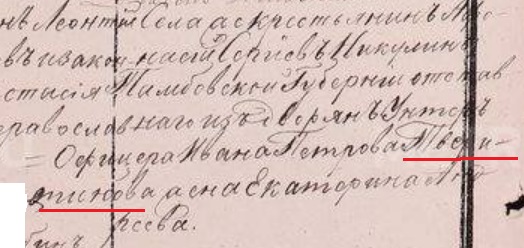 нъ Леонтій Села ас крестьянинъ Аѳо-
въ и закон. насій Сергіевъ Никулинъ
стасія Тамбовской Губерніи отстав
православнаго изъ дворянъ Унтеръ
= Офицера Ивана Петрова Твери-
тинова а она Екатерина
ксѣева.
бинъ